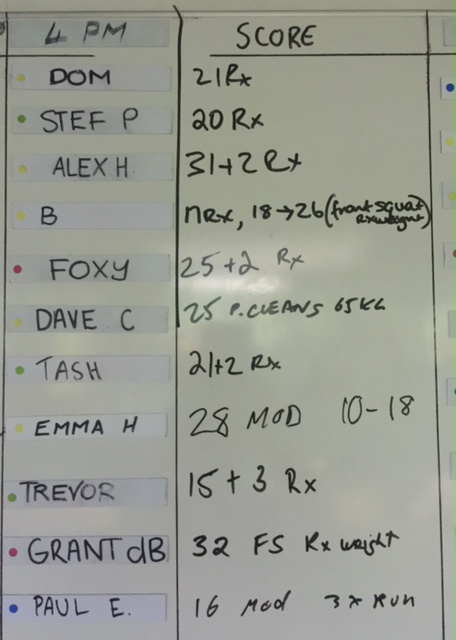 4 PM SCORE
DOM 21 Rx
STEF P 20 Rx
ALEX H. 31+2 Rx
B 17Rx, 18→26 (front squat Rx weight)
FOXY 25+2 Rx
DAVE C 25 P.CLEANS 65KG
TASH 21+2 Rx
EMMA H 28 MOD 10-18
TREVOR 15 + 3 Rx
GRANT dB 32 FS Rx weight
PAUL E. 16 Mod 3x Run